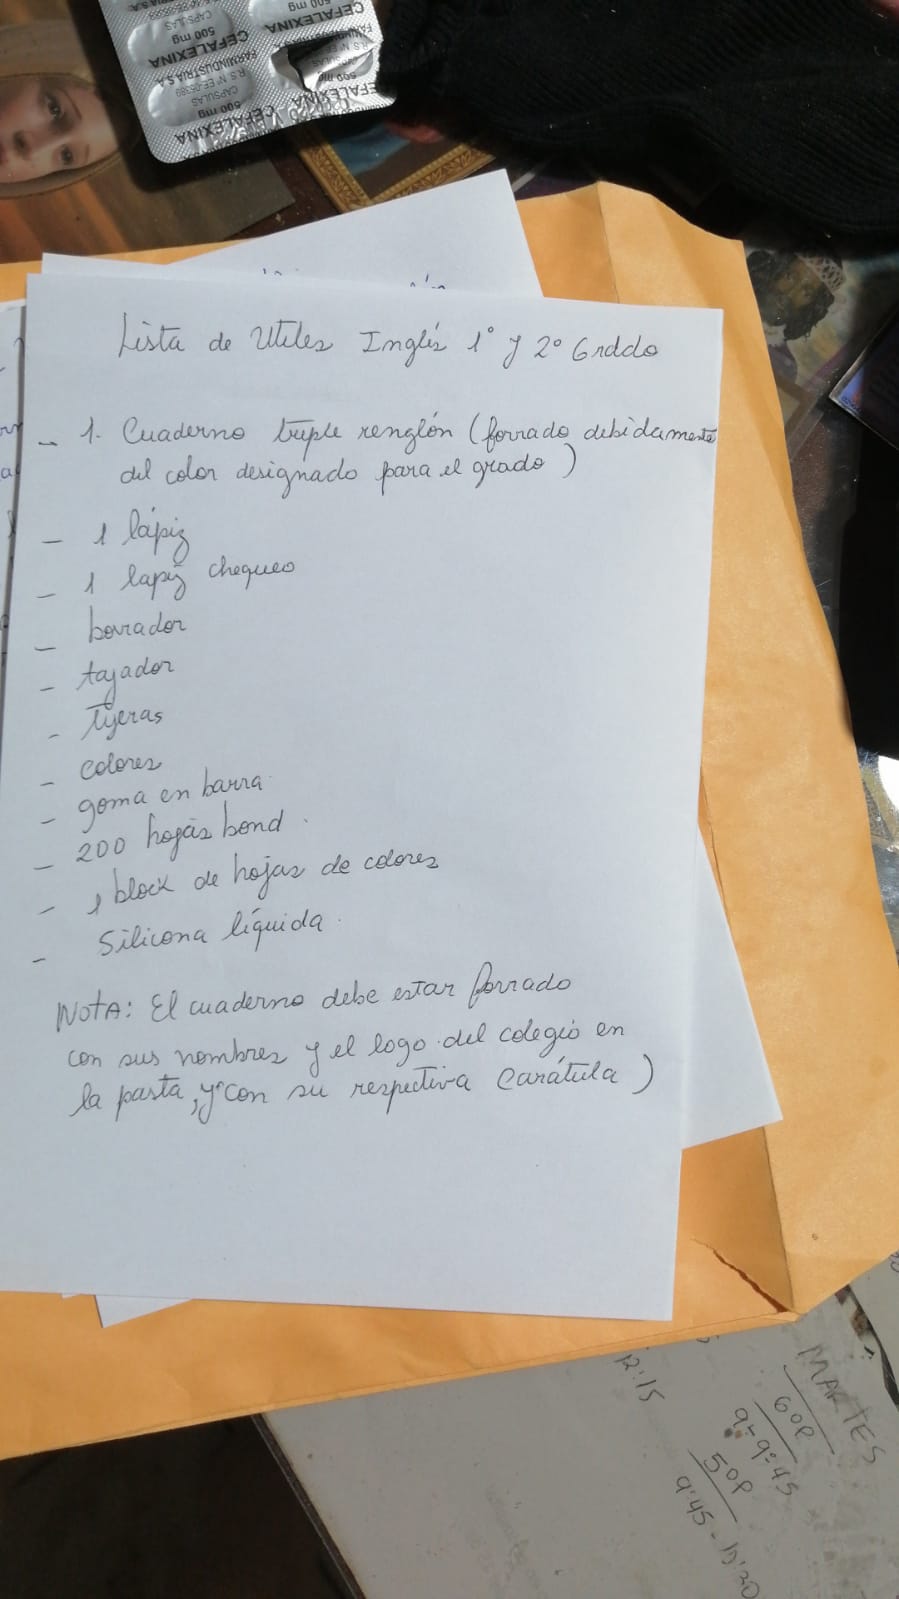 CAPSULAS
500 mg
CEFALEXINA
FARMINDUSTRIA S.A.
CAPSULAS
500 mg
CEFALEXINA
Lista de Utiles Inglés 1° y 2° Grddo
- 1. Cuaderno triple renglón (forrado debidamente
del color designado para el grado)
- 1 lápiz
- 1 lapiz chequeo
- borrador
- tajador
- tijeras
- colores
- goma en barra
- 200 hojas bond.
- 1 block de hojas de colores
- Silicona líquida.
NOTA: El cuaderno debe estar forrado
con sus nombres y el logo del colegio en
la pasta, y con su respectiva Carátula)
MARTES
6op
9-9:45
5op
9:45-10:20
12:15